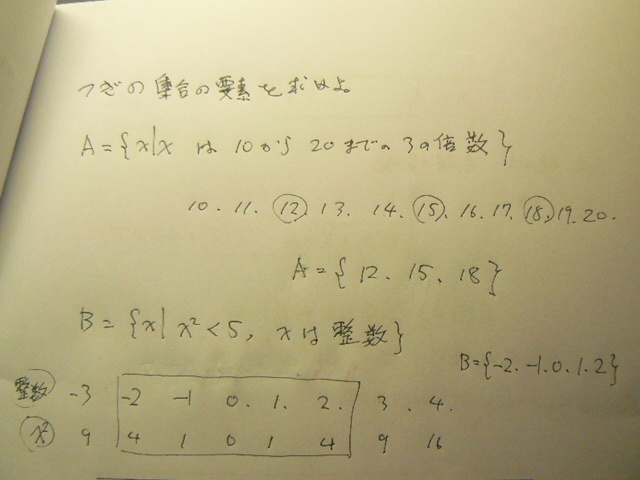 つぎの集合の要素を求めよ。
A={x|x は 10から 20までの 3の倍数}
10. 11. 12. 13. 14. 15. 16. 17. 18. 19. 20.
A={12. 15. 18}
B={x|x²<5, xは整数}
B={-2. -1. 0. 1. 2}
整数 -3 -2 -1 0. 1. 2. 3. 4.
x² 9 4 1 0 1 4 9 16